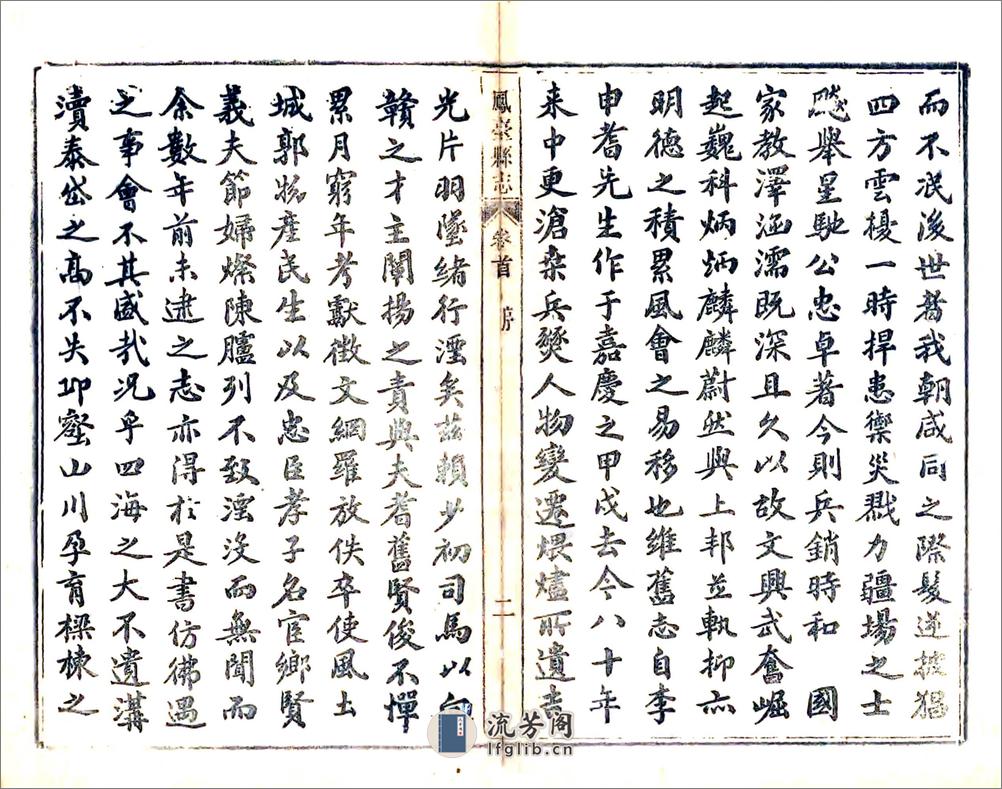 而不泯後世耆我朝咸同之際髮逆披猖
四方雲擾一時捍患禦災戮力疆場之士
飈舉星馳公忠卓著今則兵銷時和　國
家教澤涵濡既深且久以故文興武奮崛
起巍科炳炳麟麟蔚然與上邦並執抑亦
明德之積累風會之易移也維舊志自李
申耆先生作于嘉慶之甲戌去今八十年
来中更滄桑兵燹人物變遷煨燼所遺吉
鳳臺縣志
卷首
序
二
光片羽墜緒行湮矣茲賴少初司馬以
贛之才主闡揚之責與夫耆舊賢俊不憚
累月窮年考獻徵文網羅放佚卒使風土
城郭物產民生以及忠臣孝子名宦鄉賢
義夫節婦燦陳臚列不致淫沒而無聞而
余數年前未逮之志亦得於是書仿彿遇
之事會不其盛哉况乎四海之大不遺溝
瀆泰岱之高不失邱壑山川孕育樑棟之
流芳阁
lfglib.cn